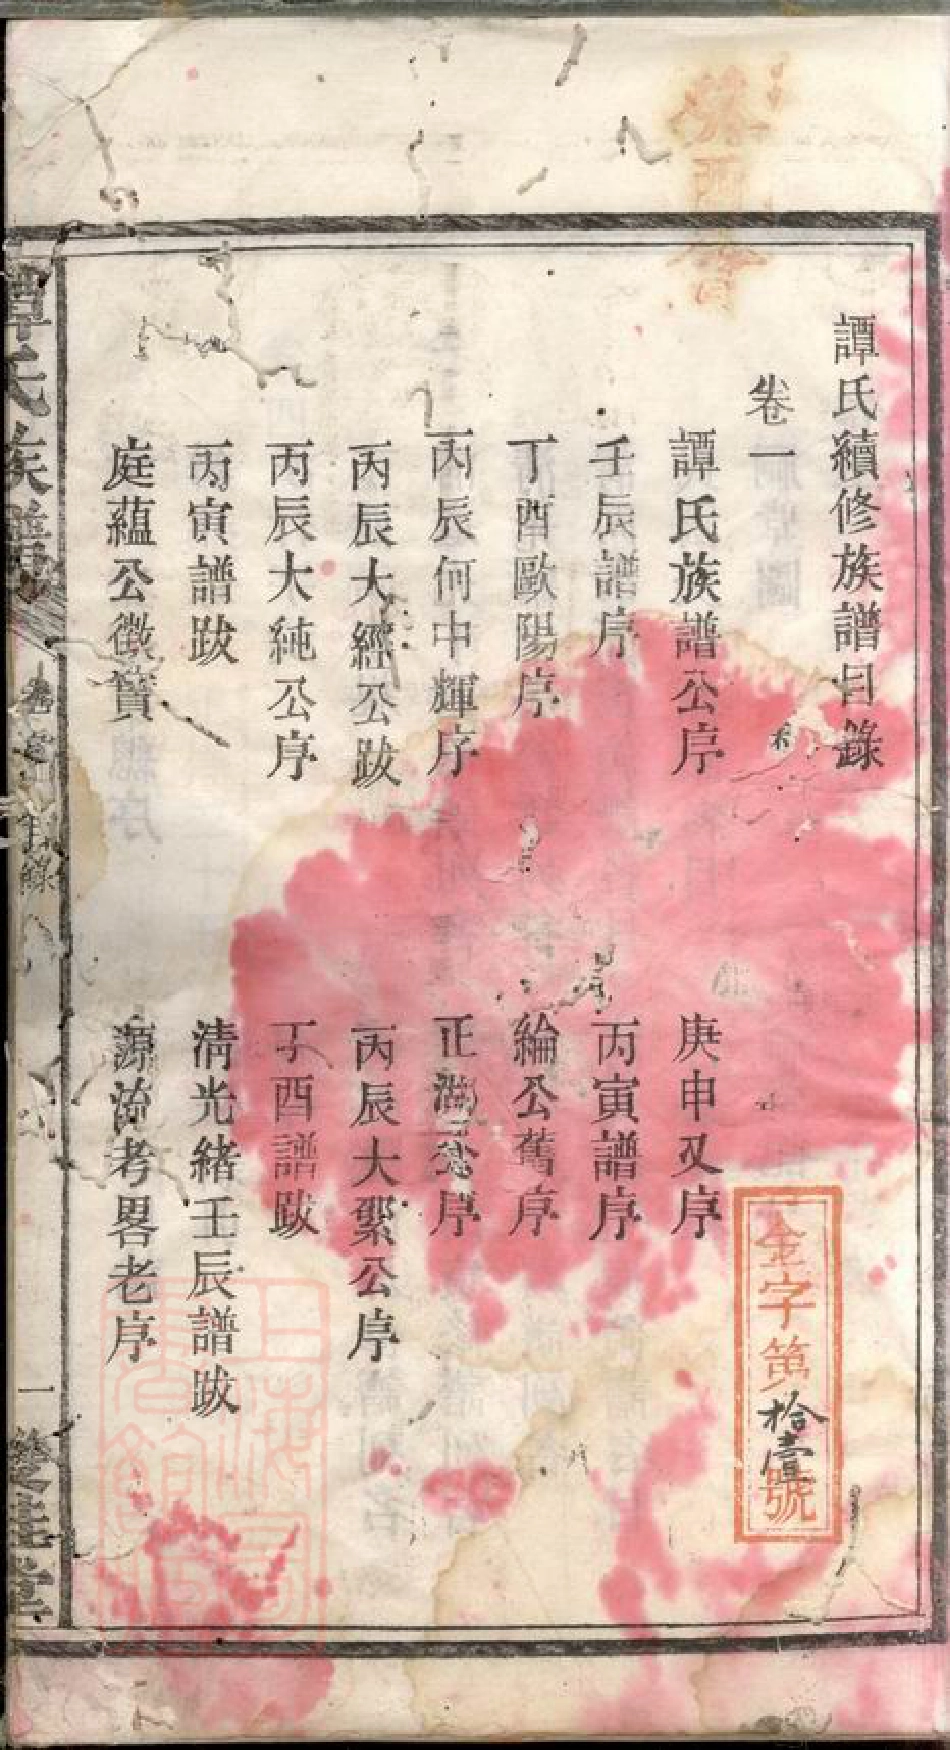 譚氏續修族譜目錄
卷一
譚氏族譜公序
庚申又序
壬辰譜序
丙寅譜序
丁酉歐陽序
綸公舊序
丙辰何中輝序
正序
丙辰大經公跋
丙辰大公序
丙辰大純公序
丁酉譜跋
丙寅譜跋
清光緒壬辰譜跋
庭蘊公徵實
源流考畧老序
譚氏族譜
卷首 目錄
一
雙桂堂
金字第拾壹號
上海圖書館藏